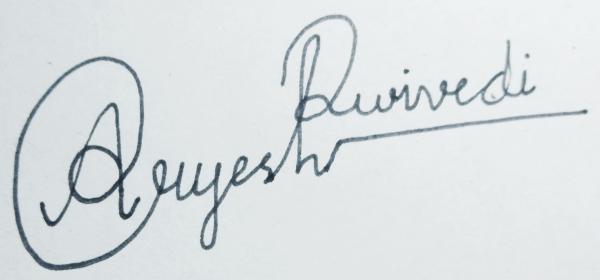 Anuyesh Dwivedi